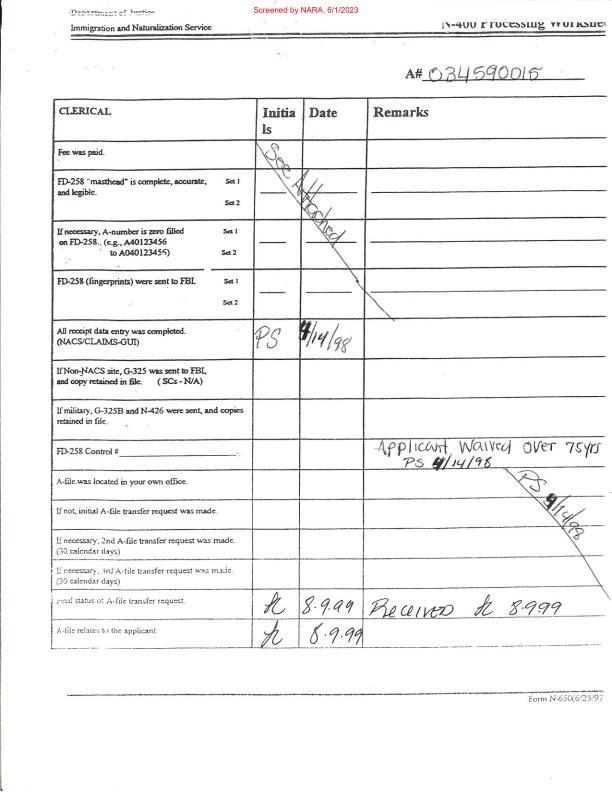 Screened by NARA, 6/1/2023
Department of Justice
Immigration and Naturalization Service
N-400 Processing Workshe
A# 034590015
CLERICAL Initia ls Date Remarks
Fee was paid.
See Attached
FD-258 "masthead" is complete, accurate, Set 1
and legible.
Set 2
If necessary, A-number is zero filled Set 1
on FD-258., (e.g., A40123456
to A040123456) Set 2
FD-258 (fingerprints) were sent to FBI. Set 1
Set 2
All receipt data entry was completed. PS 4/14/98
(NACS/CLAIMS-GUI)
If Non-NACS site, G-325 was sent to FBI,
and copy retained in file. (SCs - N/A)
If military, G-325B and N-426 were sent, and copies
retained in file.
FD-258 Control # Applicant Waived over 75yrs
PS 4/14/98
A-file was located in your own office.
PS 4/14/98
If not, initial A-file transfer request was made.
If necessary, 2nd A-file transfer request was made.
(30 calendar days)
If necessary, 3rd A-file transfer request was made.
(30 calendar days)
Final status of A-file transfer request. 8.9.99 Received 8.9.99
A-file relates to the applicant 8.9.99
Form N-650(6/25/97